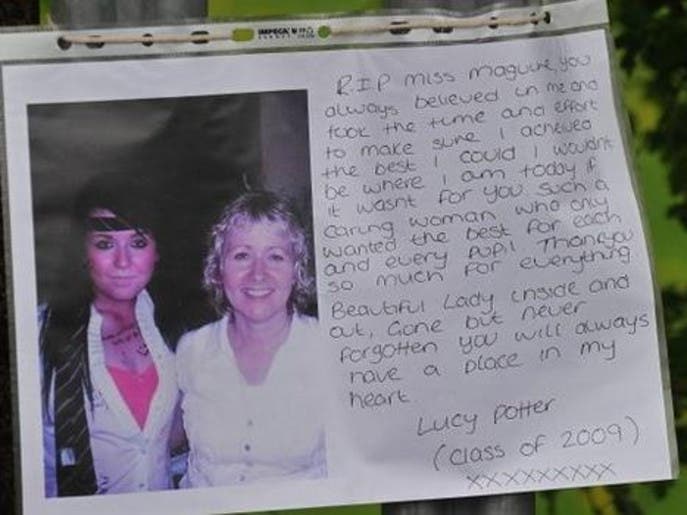 IMPEGA
R.I.P miss maguire, you
always believed in me and
took the time and effort
to make sure I acheived
the best I could I wouldnt
be where I am today if
it wasnt for you such a
caring woman who only
wanted the best for each
and every pupil Thankyou
so much for everything
Beautiful Lady inside and
out, Gone but never
forgotten you will always
have a place in my
heart.
Lucy Potter
(class of 2009)
xxxxxxxxx